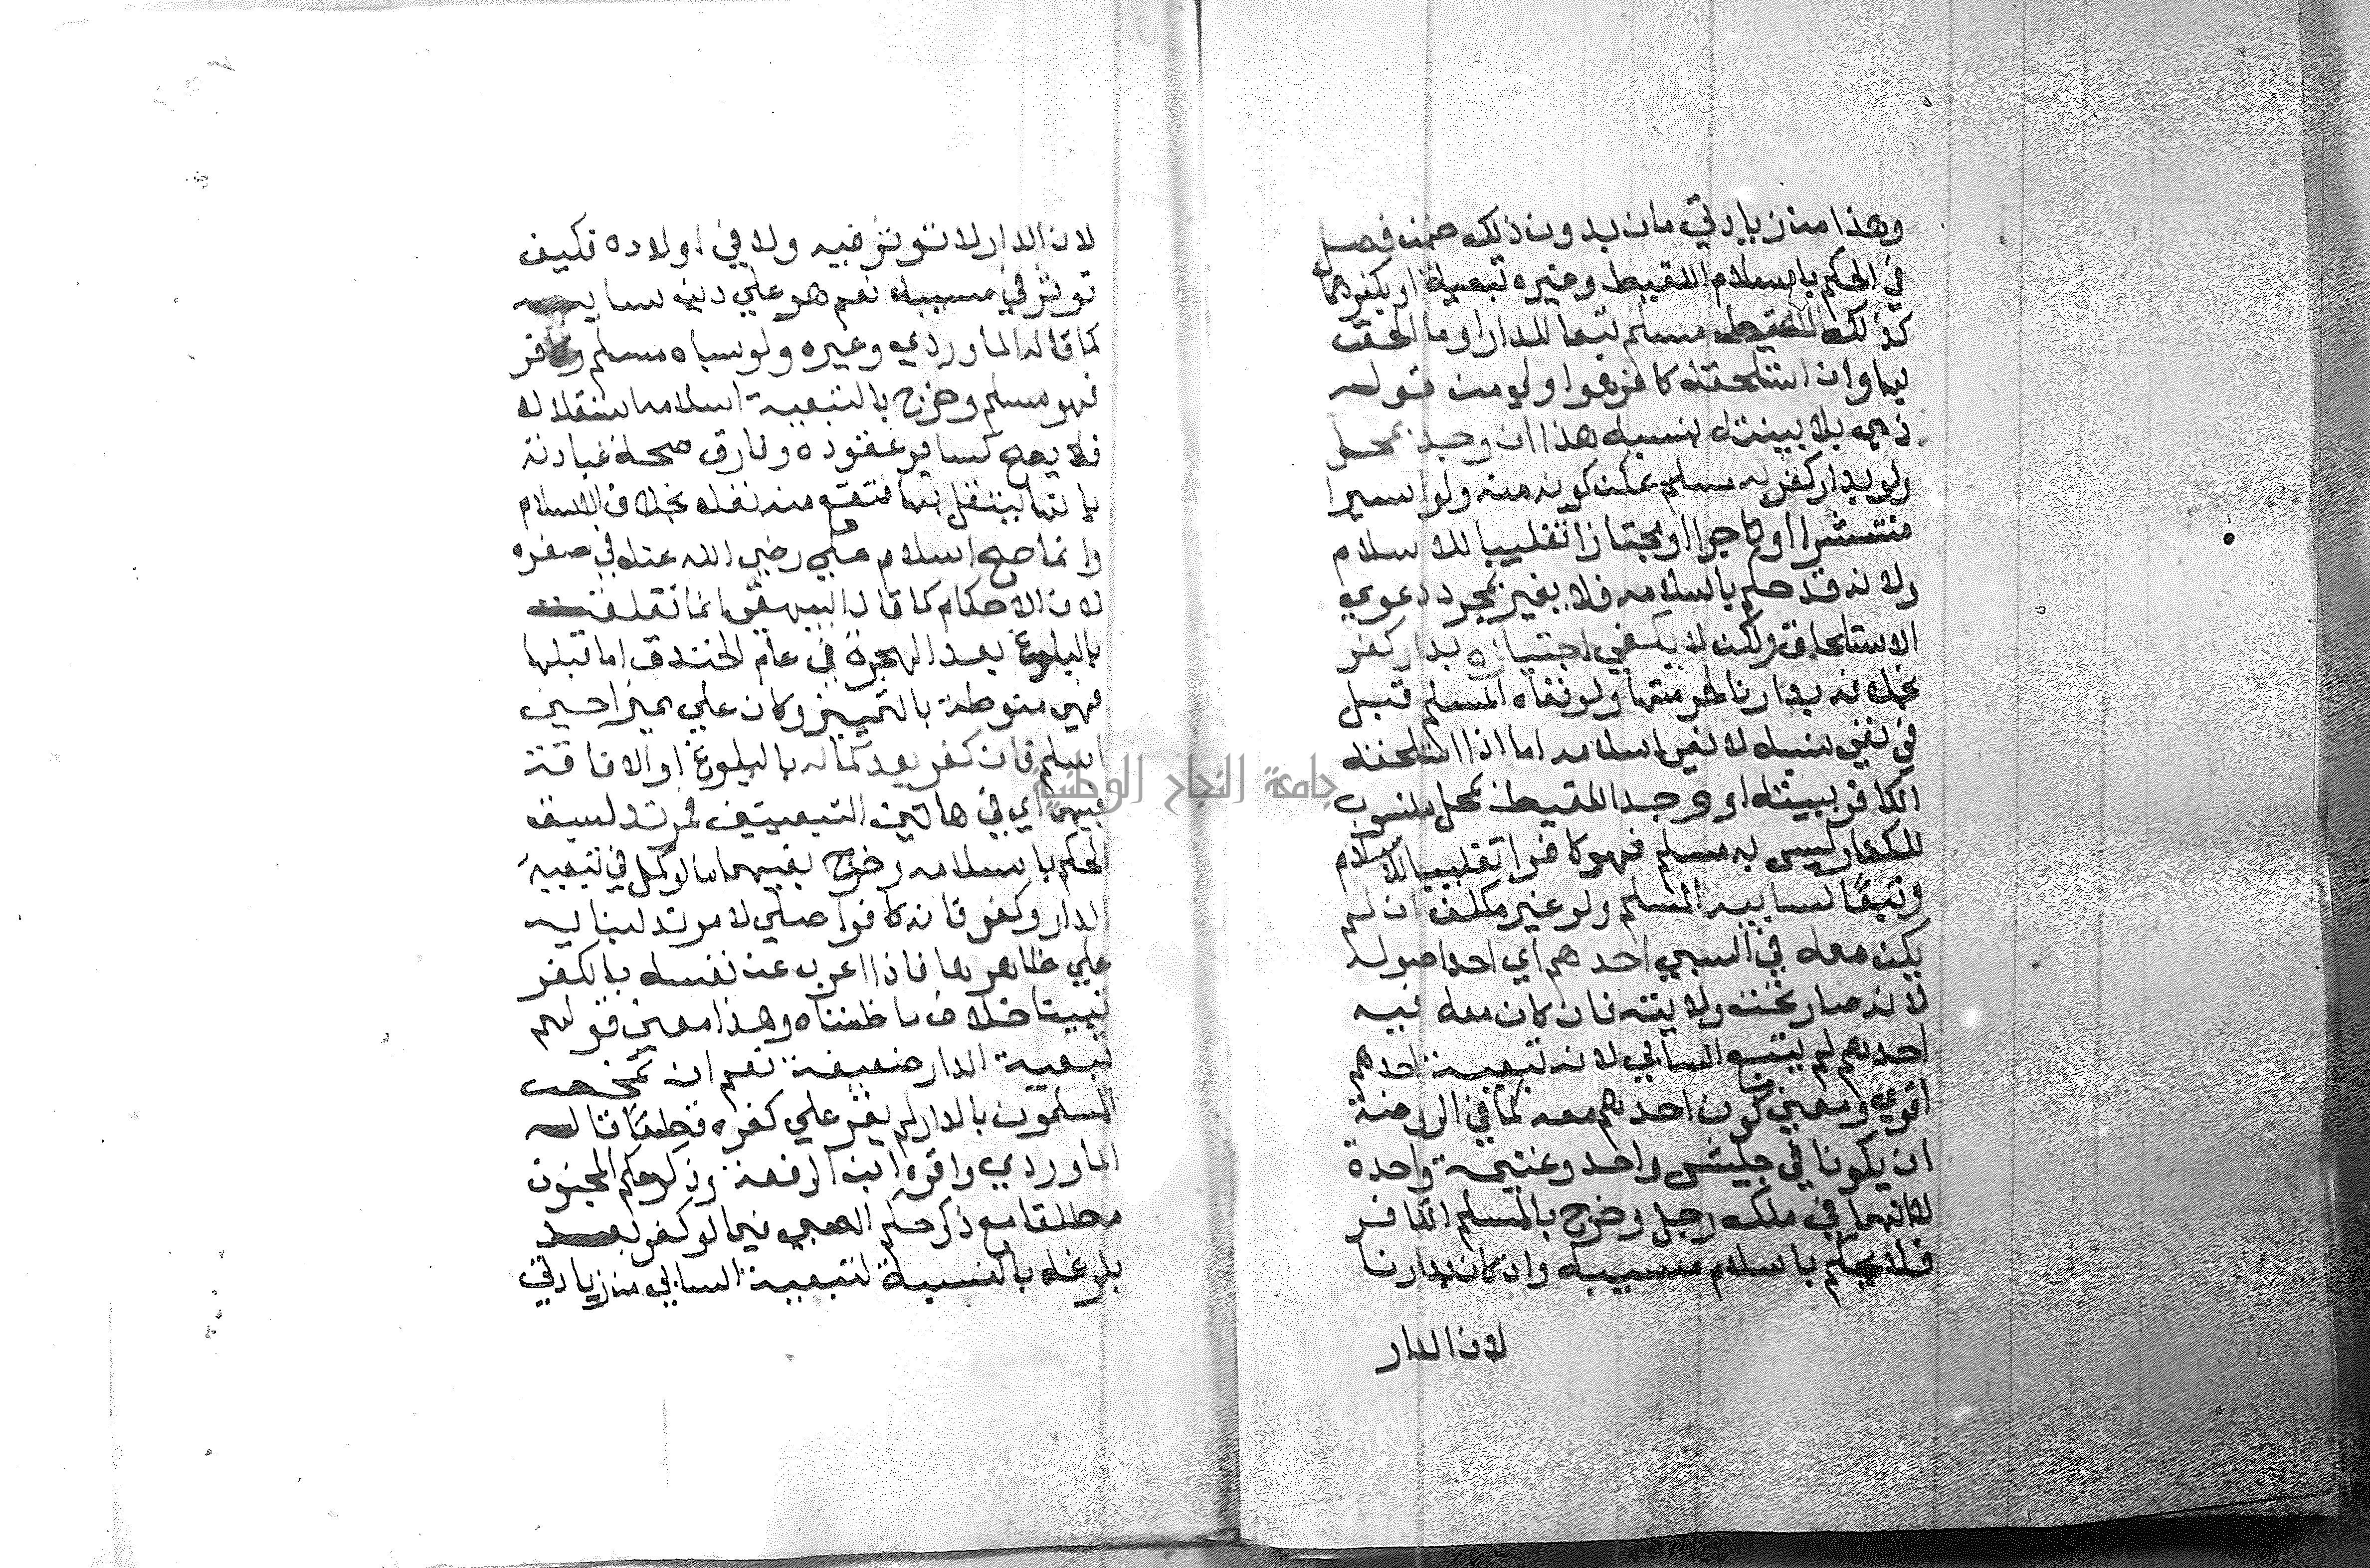 وهذا من زيادتي مات بدون ذلك ضمن فصل
في الحكم باسلام اللقيط وغيره تبعية او بكفرهما
كذلك اللقيط مسلم تبعا للدار وما الحقت
بها وان استلحقه كافر هو اولي من قوله
ذمي بلا بينة بنسبه هذا ان وجد بمحل
ولو بدار كفر به مسلم يمكن كونه منه ولو اسيرا
منتشرا او تاجرا او مجتازا تغليبا للاسلام
ولانه قد حكم باسلامه فلا يغير بمجرد دعوي
الاستلحاق ولكن لا يكفي اجتيازه بدار كفر
بخلافه بدارنا لحرمتها ولو نفاه المسلم قبل
في نفي نسبه لا نفي اسلامه اما اذا استلحقه
الكافر ببينة او وجد اللقيط بمحل منسوب
للكفار ليس به مسلم فهو كافر تغليبا للاسلام
وتبعا لسابيه المسلم ولو غير مكلف ان لم
يكن معه في السبي احدهم اي احد اصوله
لانه صار تحت ولايته فان كان معه فيه
احدهم لم يتبع السابي لانه تبعية احدهم
اقوي ومعني كون احدهم معه كما في الروضة
ان يكونا في جيش واحد وغنيمة واحدة
لا انهما في ملك رجل وخرج بالمسلم الكافر
فلا يحكم باسلام مسبيه وان كان بدارنا
لان الدار
لان الدار لا توثر فيه ولا في اولاده فكيف
توثر في مسبيه نعم هو علي دين سابيه
كما قاله الماوردي وغيره ولو سباه مسلم وكافر
فهو مسلم وخرج بالتبعية اسلامه استقلالا
فلا يصح كساير عقوده وفارق صحة عبادته
بانها يتنفل بها فتقع منه نفلا بخلاف الاسلام
وانما صح اسلام علي رضي الله عنه في صغره
لان الاحكام كما قال البيهقي انما تعلقت
بالبلوغ بعد الهجرة في عام الخندق اما قبلها
فهي منوطة بالتمييز وكان علي مميزا حين
اسلم فان كفر بعد كماله بالبلوغ او الافاقة
فيهما اي في هاتين التبعيتين فمرتد لسبق
الحكم باسلامه وخرج بفيهما ما لو كمل في تبعية
الدار وكفر فانه كافر اصلي لا مرتد لبنايه
علي ظاهرها فاذا اعرب عن نفسه بالكفر
تبينا خلاف ما ظنناه وهذا معني قولهم
تبعية الدار ضعيفة نعم ان تمحض
المسلمون بالدار لم يقر علي كفره قطعا قاله
الماوردي واقره ابن الرفعة وذكر حكم المجنون
مطلقا مع ذكر حكم الصبي فيما لو كفر بعد
بلوغه بالنسبة لتبعية السابي من زيادتي
جامعة النجاح الوطنية